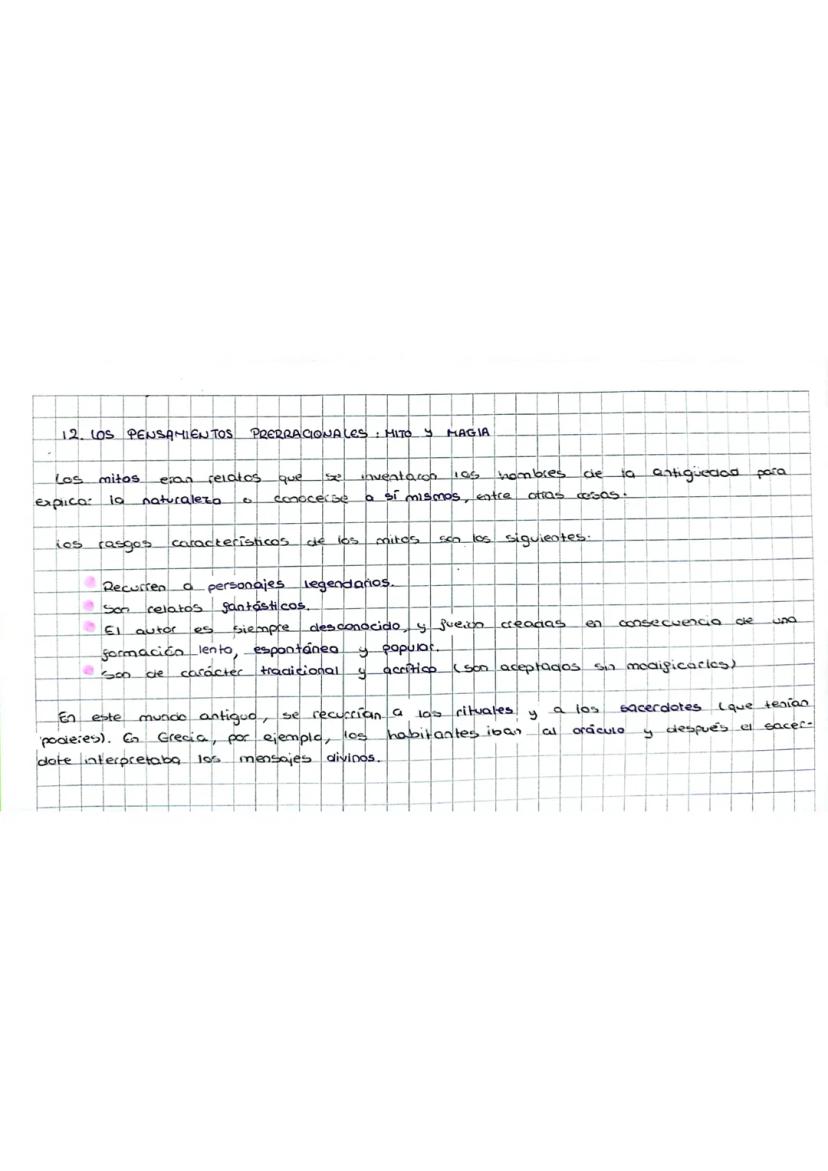 12. LOS PENSAMIENTOS PRERRACIONALES: MITO Y MAGIA
Los mitos eran relatos que se inventaron los hombres de la antigüedad para
explicar la naturaleza o conocerse a sí mismos, entre otras cosas.
Los rasgos característicos de los mitos son los siguientes:
Recurren a personajes legendarios.
Son relatos fantásticos.
El autor es siempre desconocido, y fueron creadas en consecuencia de una
formación lenta, espontánea y popular.
Son de carácter tradicional y acrítico (son aceptados sin modificarlos)
En este mundo antiguo, se recurrían a los rituales y a los sacerdotes (que tenían
poderes). En Grecia, por ejemplo, los habitantes iban al oráculo y después el sacer-
dote interpretaba los mensajes divinos.